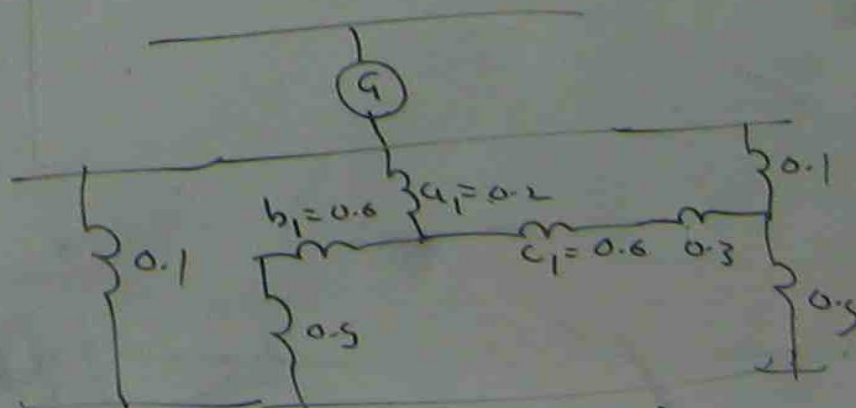 G
0.1
b₁=0.6 a₁=0.2
0.1
c₁=0.6 0.3
0.5
0.5